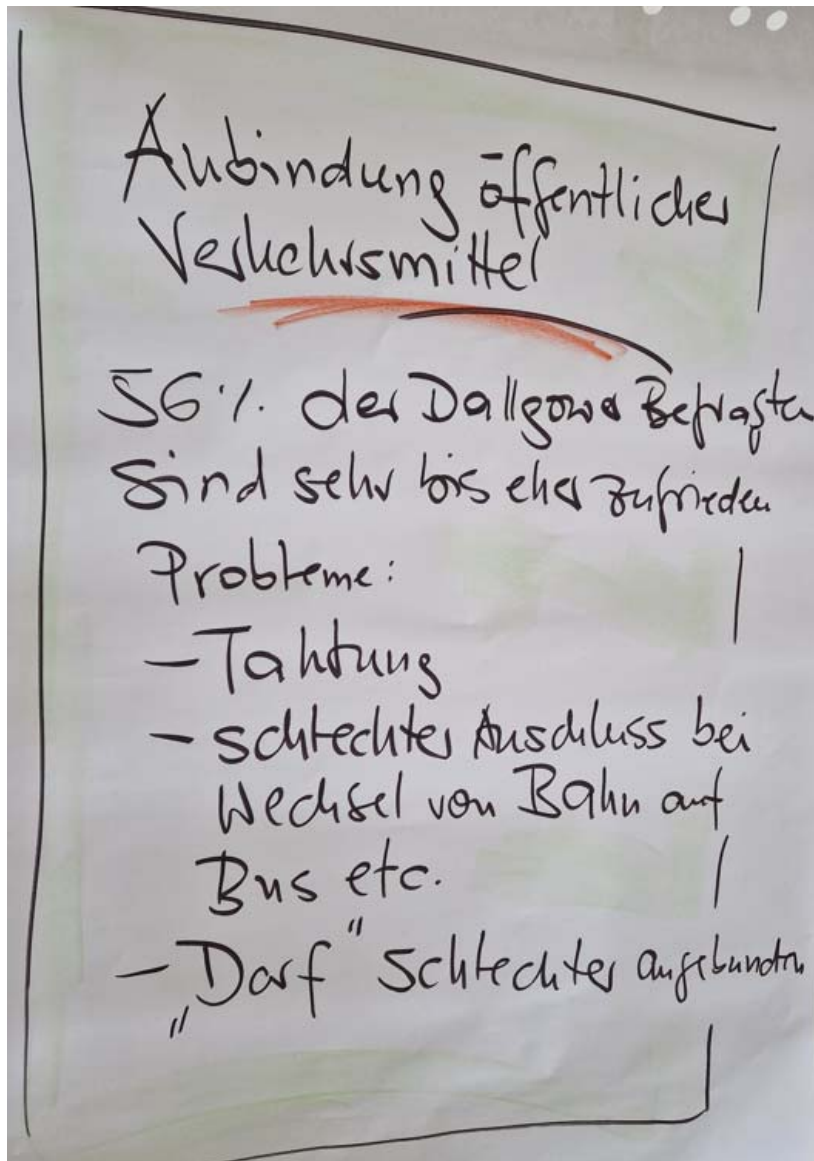 Anbindung öffentlicher
Verkehrsmittel
56 % der Dallgower Befragten
sind sehr bis eher zufrieden
Probleme:
- Taktung
- schlechter Anschluss bei
Wechsel von Bahn auf
Bus etc.
- „Dorf" schlechter angebunden